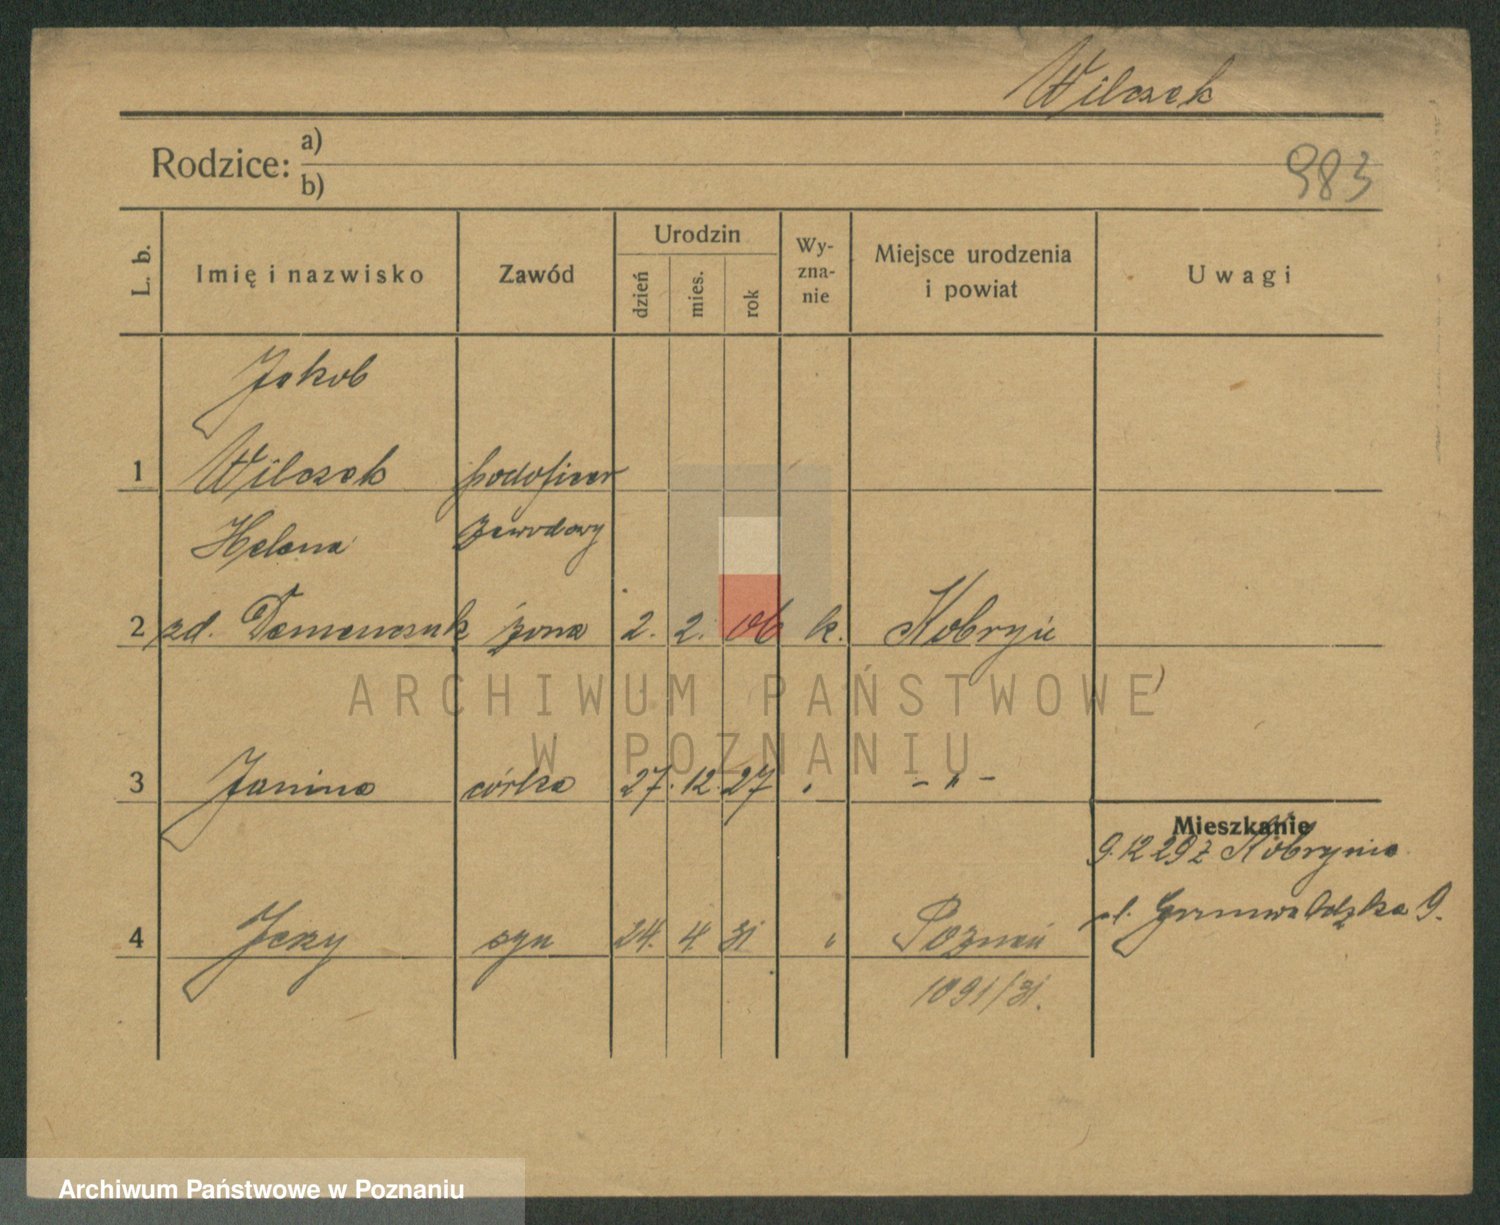 Wilczek
Rodzice: a)
b)
983
L. b.
Imię i nazwisko
Zawód
Urodzin
dzień
mies.
rok
Wy-
zna-
nie
Miejsce urodzenia
i powiat
Uwagi
Jakob
1 Wilczek podoficer
Helena zawodowy
2 zd. Demenczuk żona 2. 2. 06 k. Kobryń
3 Janina córka 27. 12. 27 " - " -
Mieszkanie
9.12 29 z Kobrynia
ul. Grunwaldzka 9.
4 Jerzy syn 24. 4. 31 " Poznań
1091/31.
ARCHIWUM PAŃSTWOWE
W POZNANIU
Archiwum Państwowe w Poznaniu